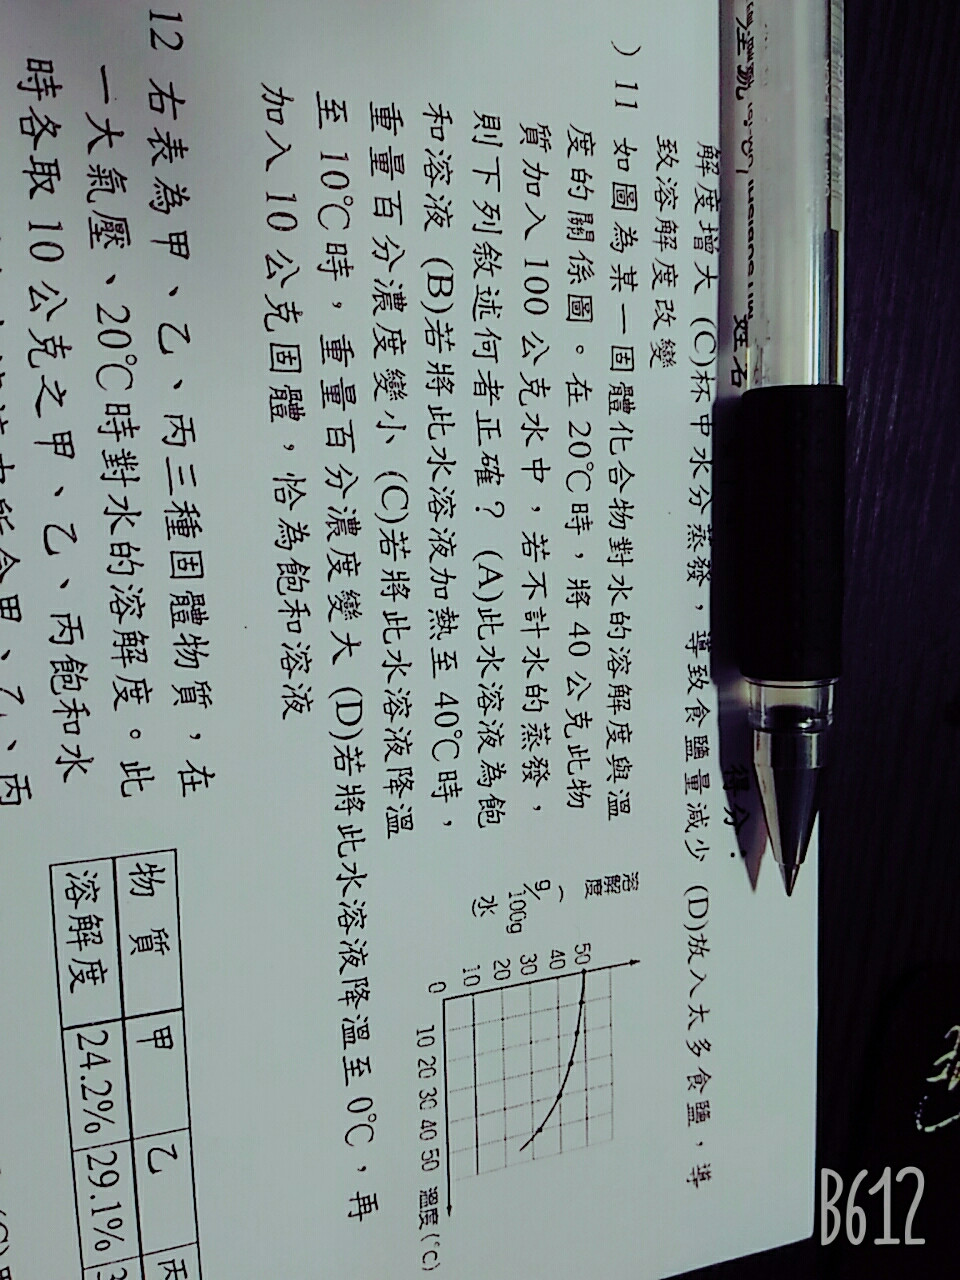 解度增大 (C)杯中水分蒸發，導致食鹽量減少 (D)放入太多食鹽，導
致溶解度改變
) 11 如圖為某一固體化合物對水的溶解度與溫
度的關係圖。在 20℃時，將 40 公克此物
質加入 100 公克水中，若不計水的蒸發，
則下列敘述何者正確？ (A)此水溶液為飽
和溶液 (B)若將此水溶液加熱至 40℃時，
重量百分濃度變小 (C)若將此水溶液降溫
至 10℃時，重量百分濃度變大 (D)若將此水溶液降溫至 0℃，再
加入 10 公克固體，恰為飽和溶液
溶解度
(g/100g水)
50
40
30
20
10
0
10 20 30 40 50 溫度(℃)
12 右表為甲、乙、丙三種固體物質，在
一大氣壓、20℃時對水的溶解度。此
時各取 10 公克之甲、乙、丙飽和水
物質 甲 乙 丙
溶解度 24.2% 29.1% 3
姓名
得分：
B612